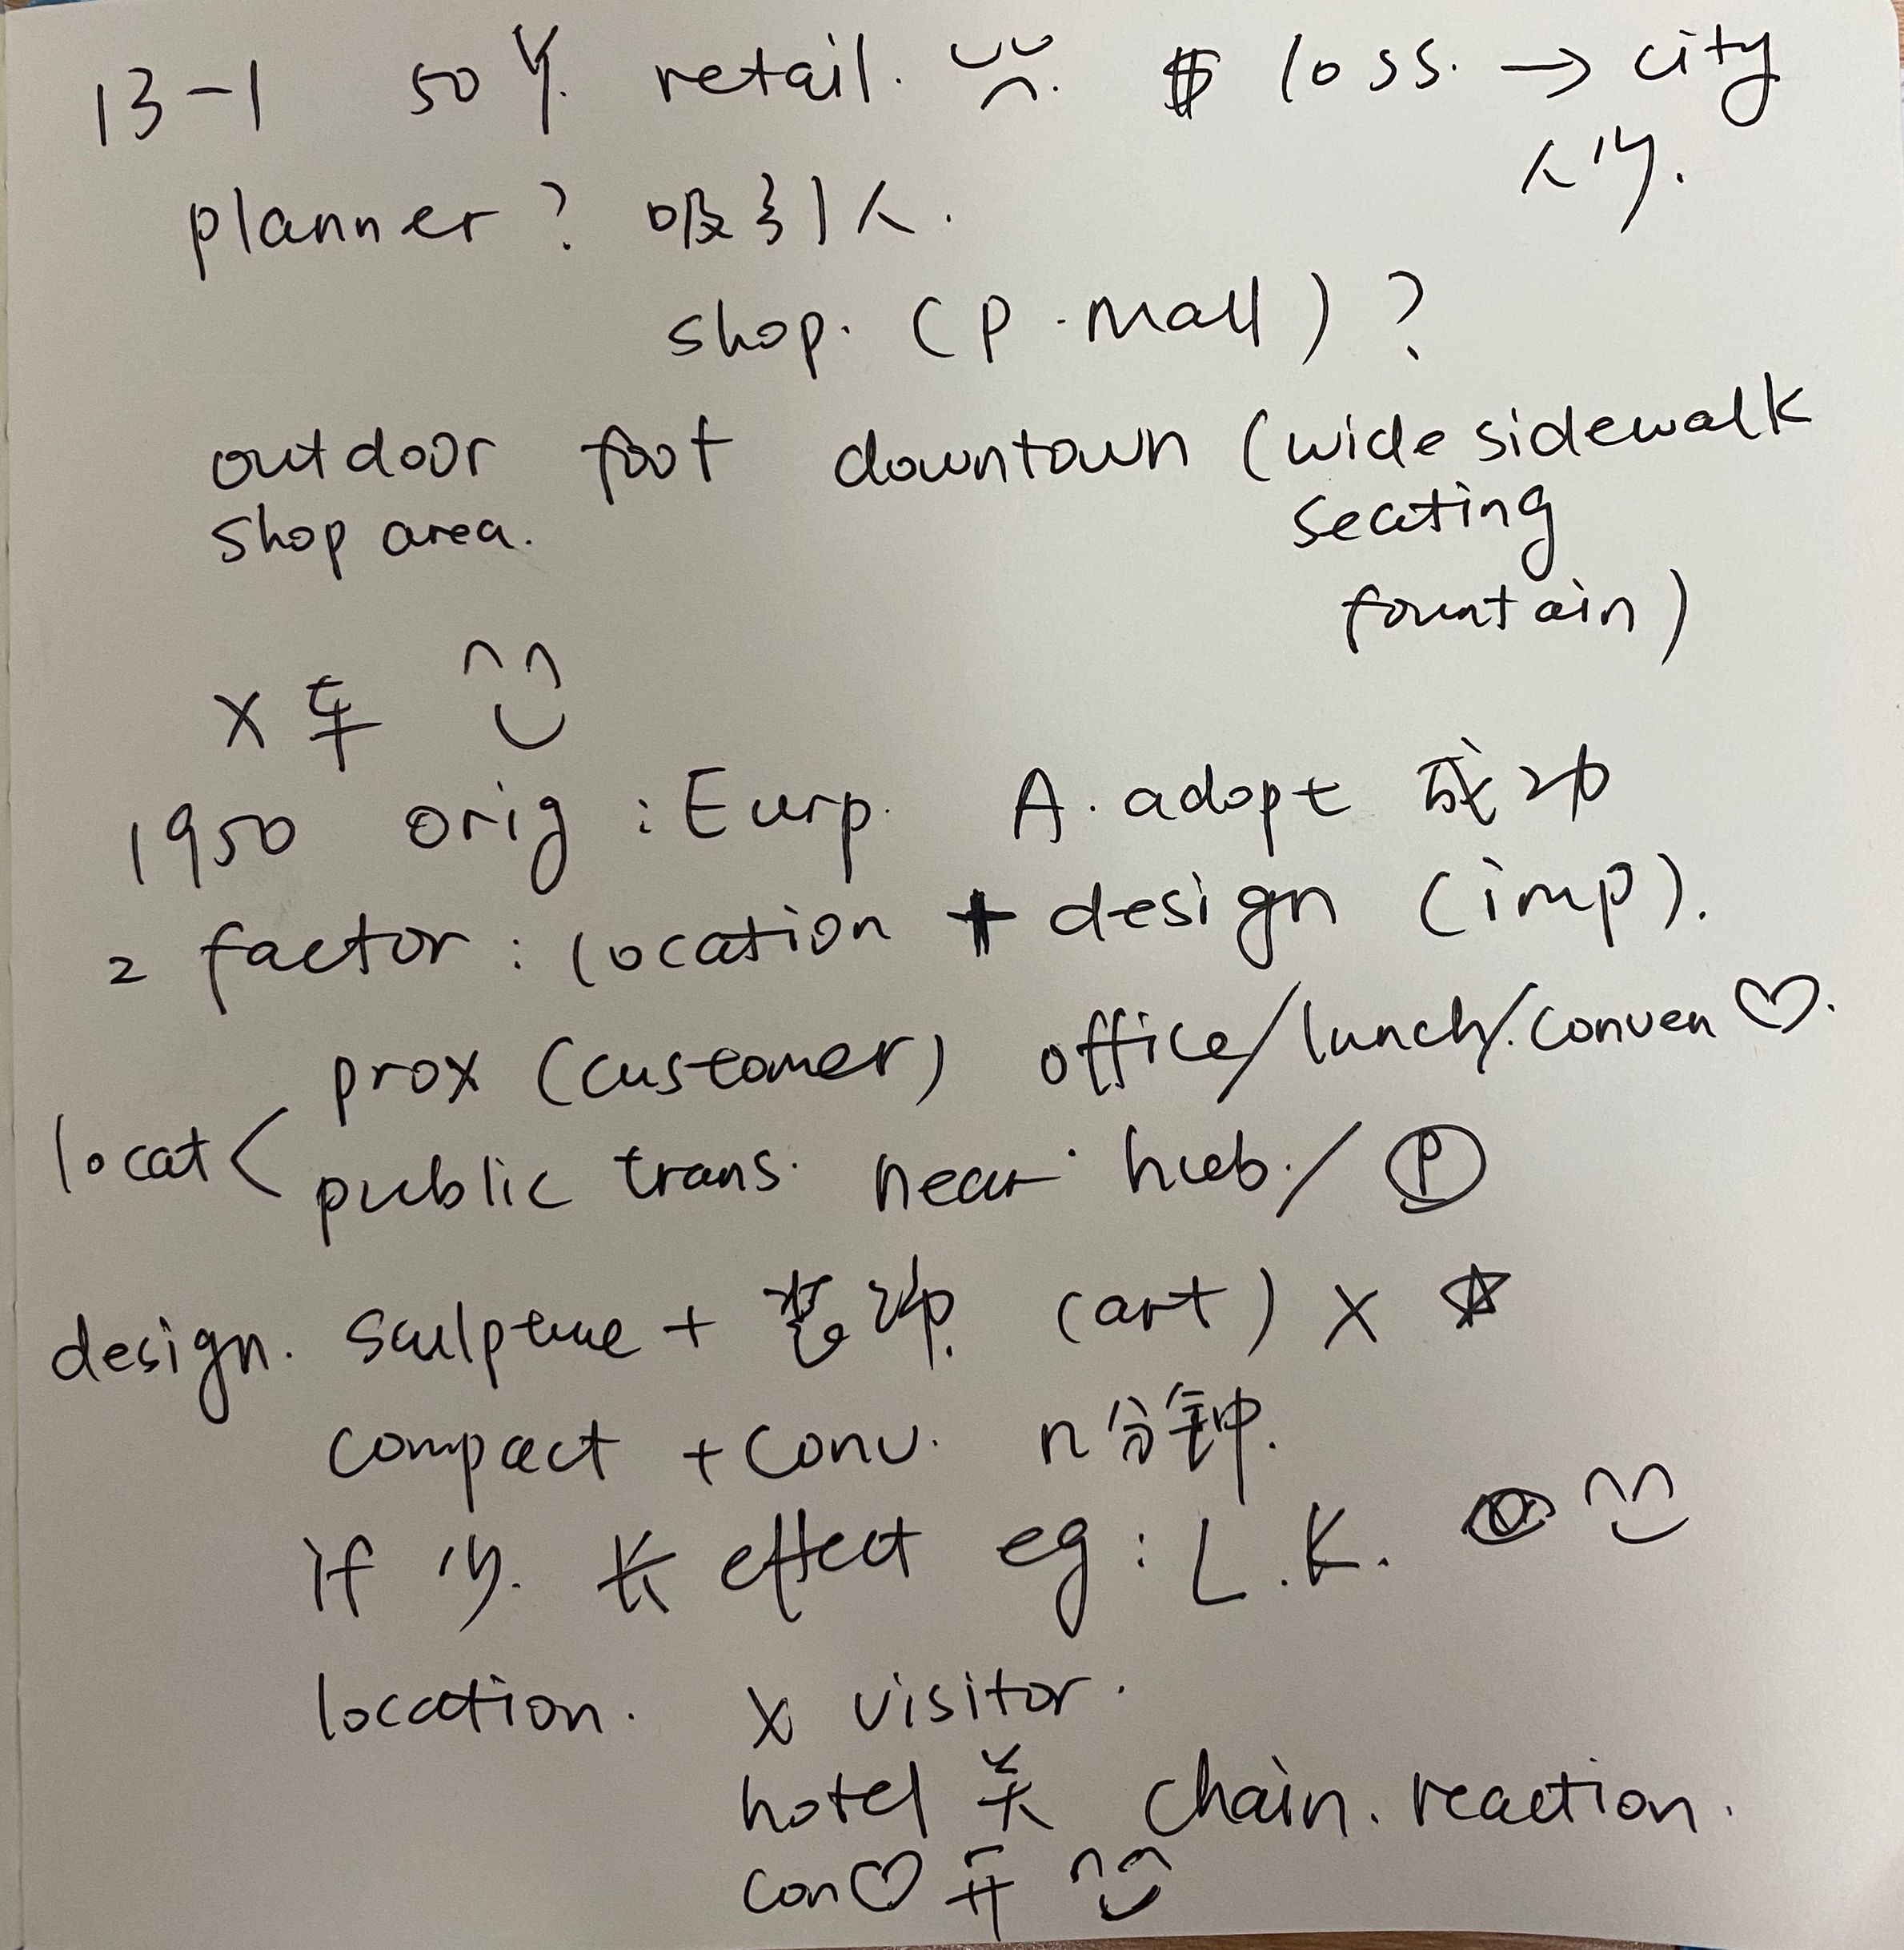 13-1 50 Y. retail. $ loss. → city
人少.
planner? 吸引人.
shop. (P. Mall)?
outdoor foot downtown (wide sidewalk
shop area. seating
fountain)
x 车
1950 orig : Eurp. A. adopt 成功
2 factor : location + design (imp).
prox (customer) office/lunch/.conven ♡.
locat <
public trans. near hub./ Ⓟ
design. Sculpture + (art) x ☆
compact + conv. n分钟.
if 少. 长 effect eg : L.K.
location. x visitor.
hotel 关 chain. reaction.
con♡ 开